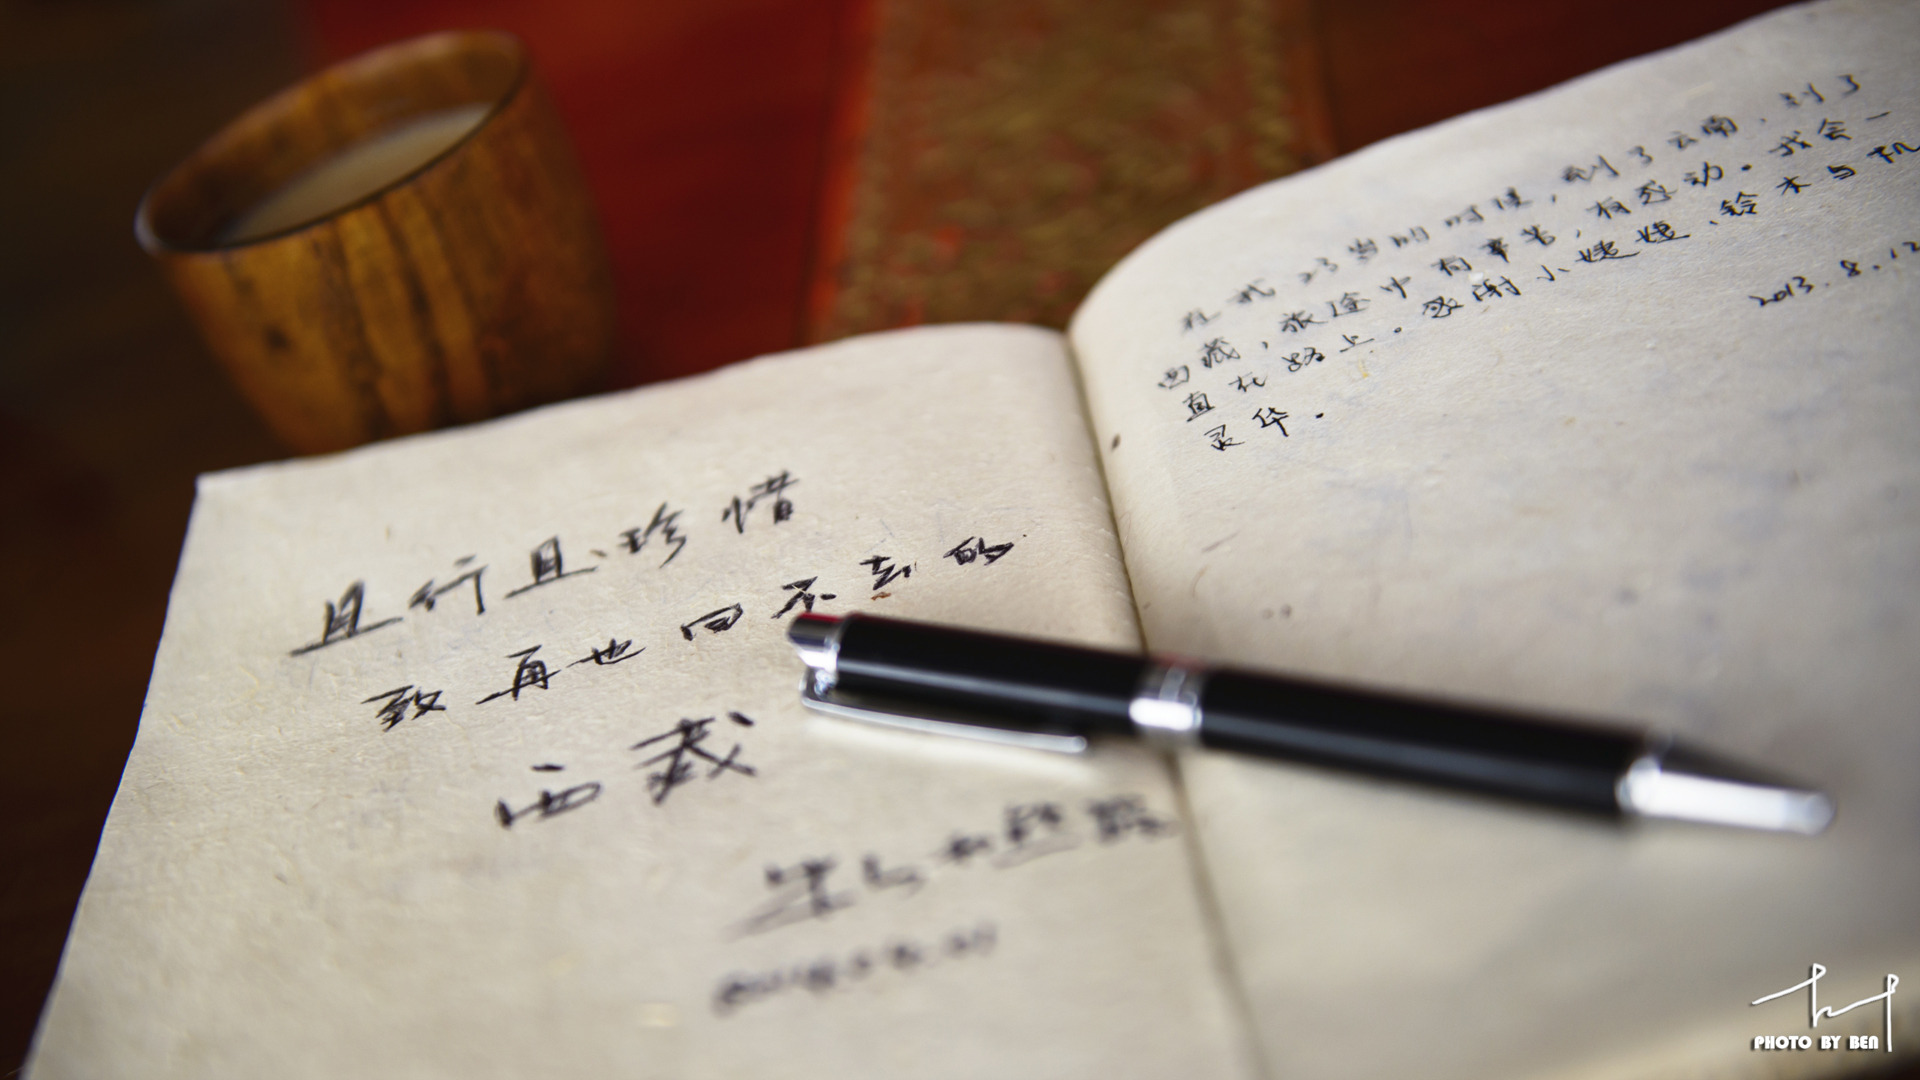 且行且珍惜
致再也回不去的
西藏
在我23岁的时候,到了云南,到了
西藏,旅途中有辛苦,有感动。我会一
直在路上。感谢小姨姨、铃木与机
灵华.
2013.8.12
PHOTO BY BEN